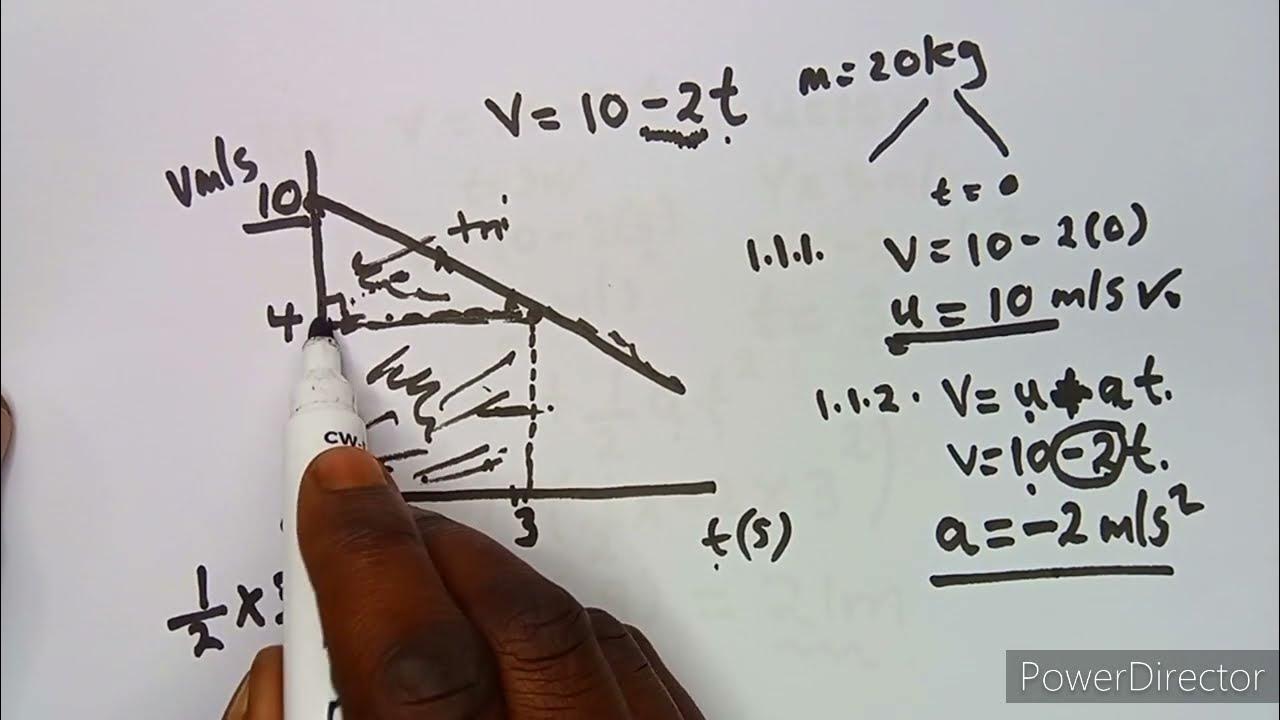 V = 10 - 2t
m = 20kg
Vm/s
10
tri
4
3
t(s)
1/2 x
CW
t = 0
1.1.1. V = 10 - 2(0)
u = 10 m/s
1.1.2. V = u + at.
V = 10 - 2t.
a = -2 m/s²
PowerDirector